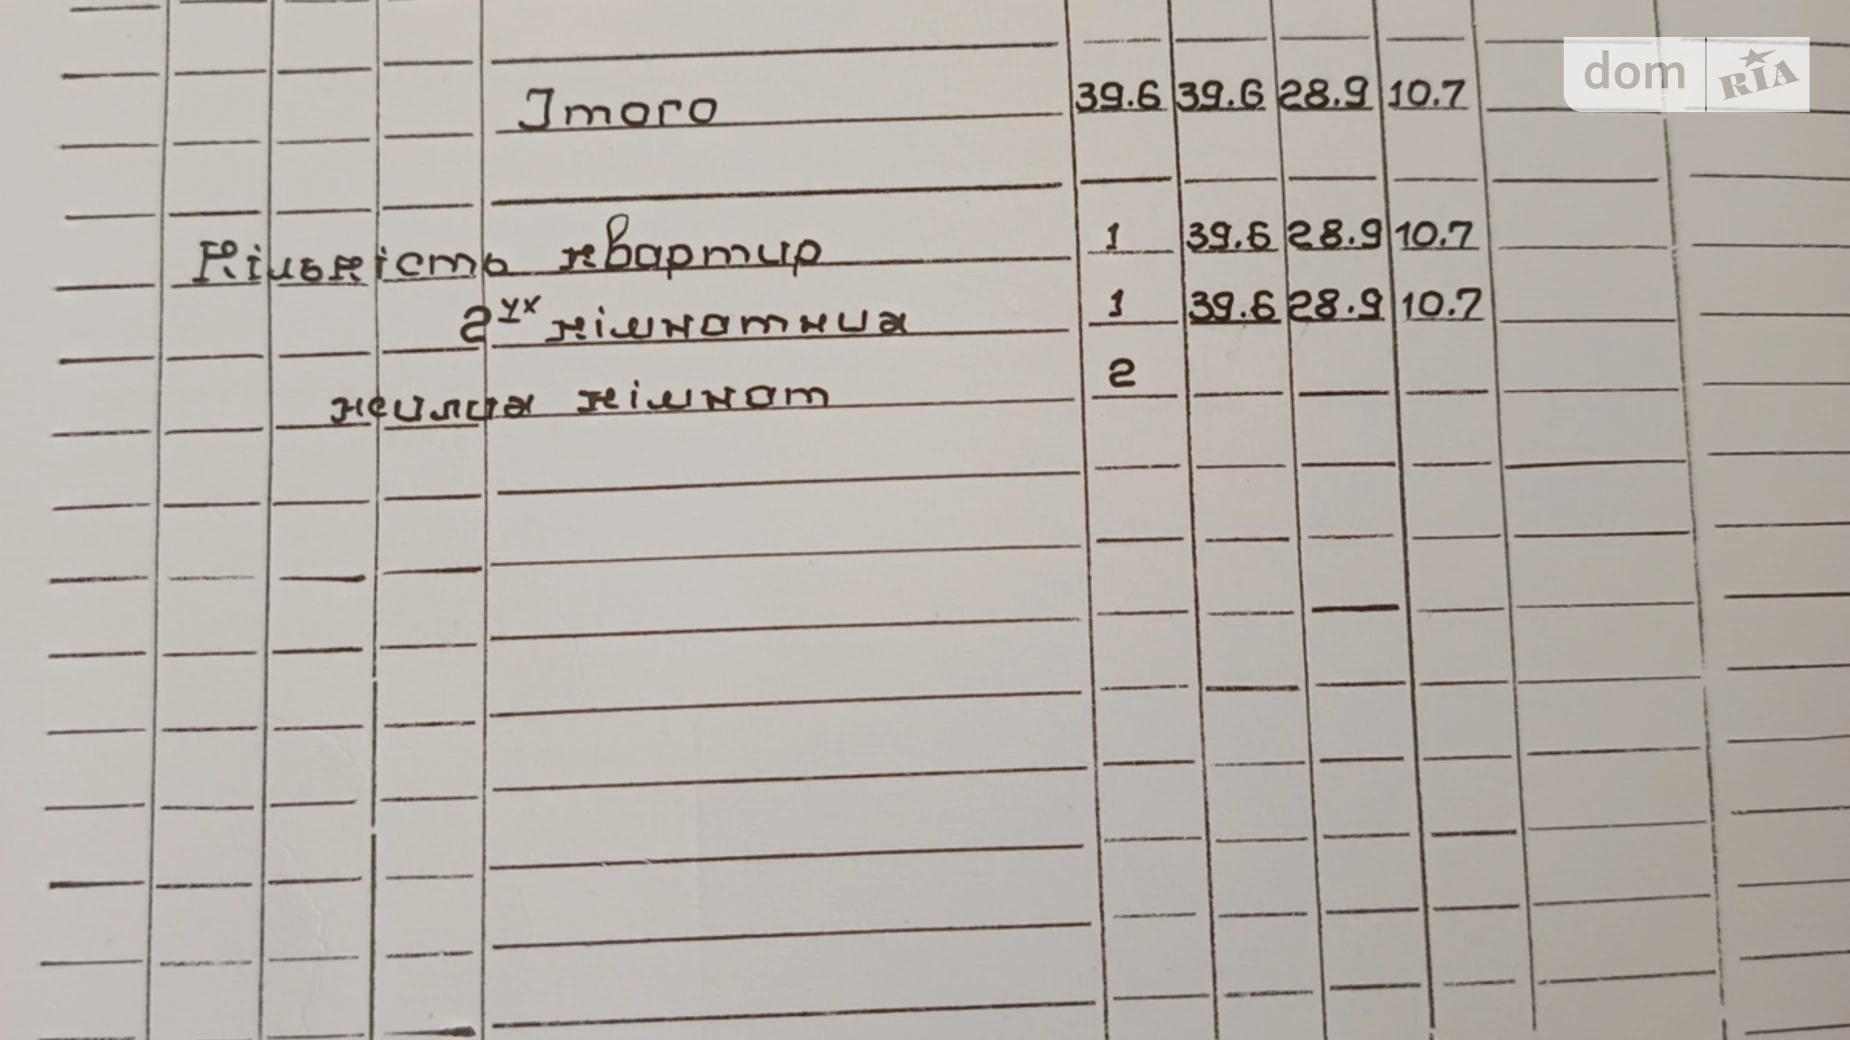 dom RIA
Ітого 39.6 39.6 28.9 10.7
Кількість квартир 1 39.6 28.9 10.7
2ух кімнатних 1 39.6 28.9 10.7
жилих кімнат 2